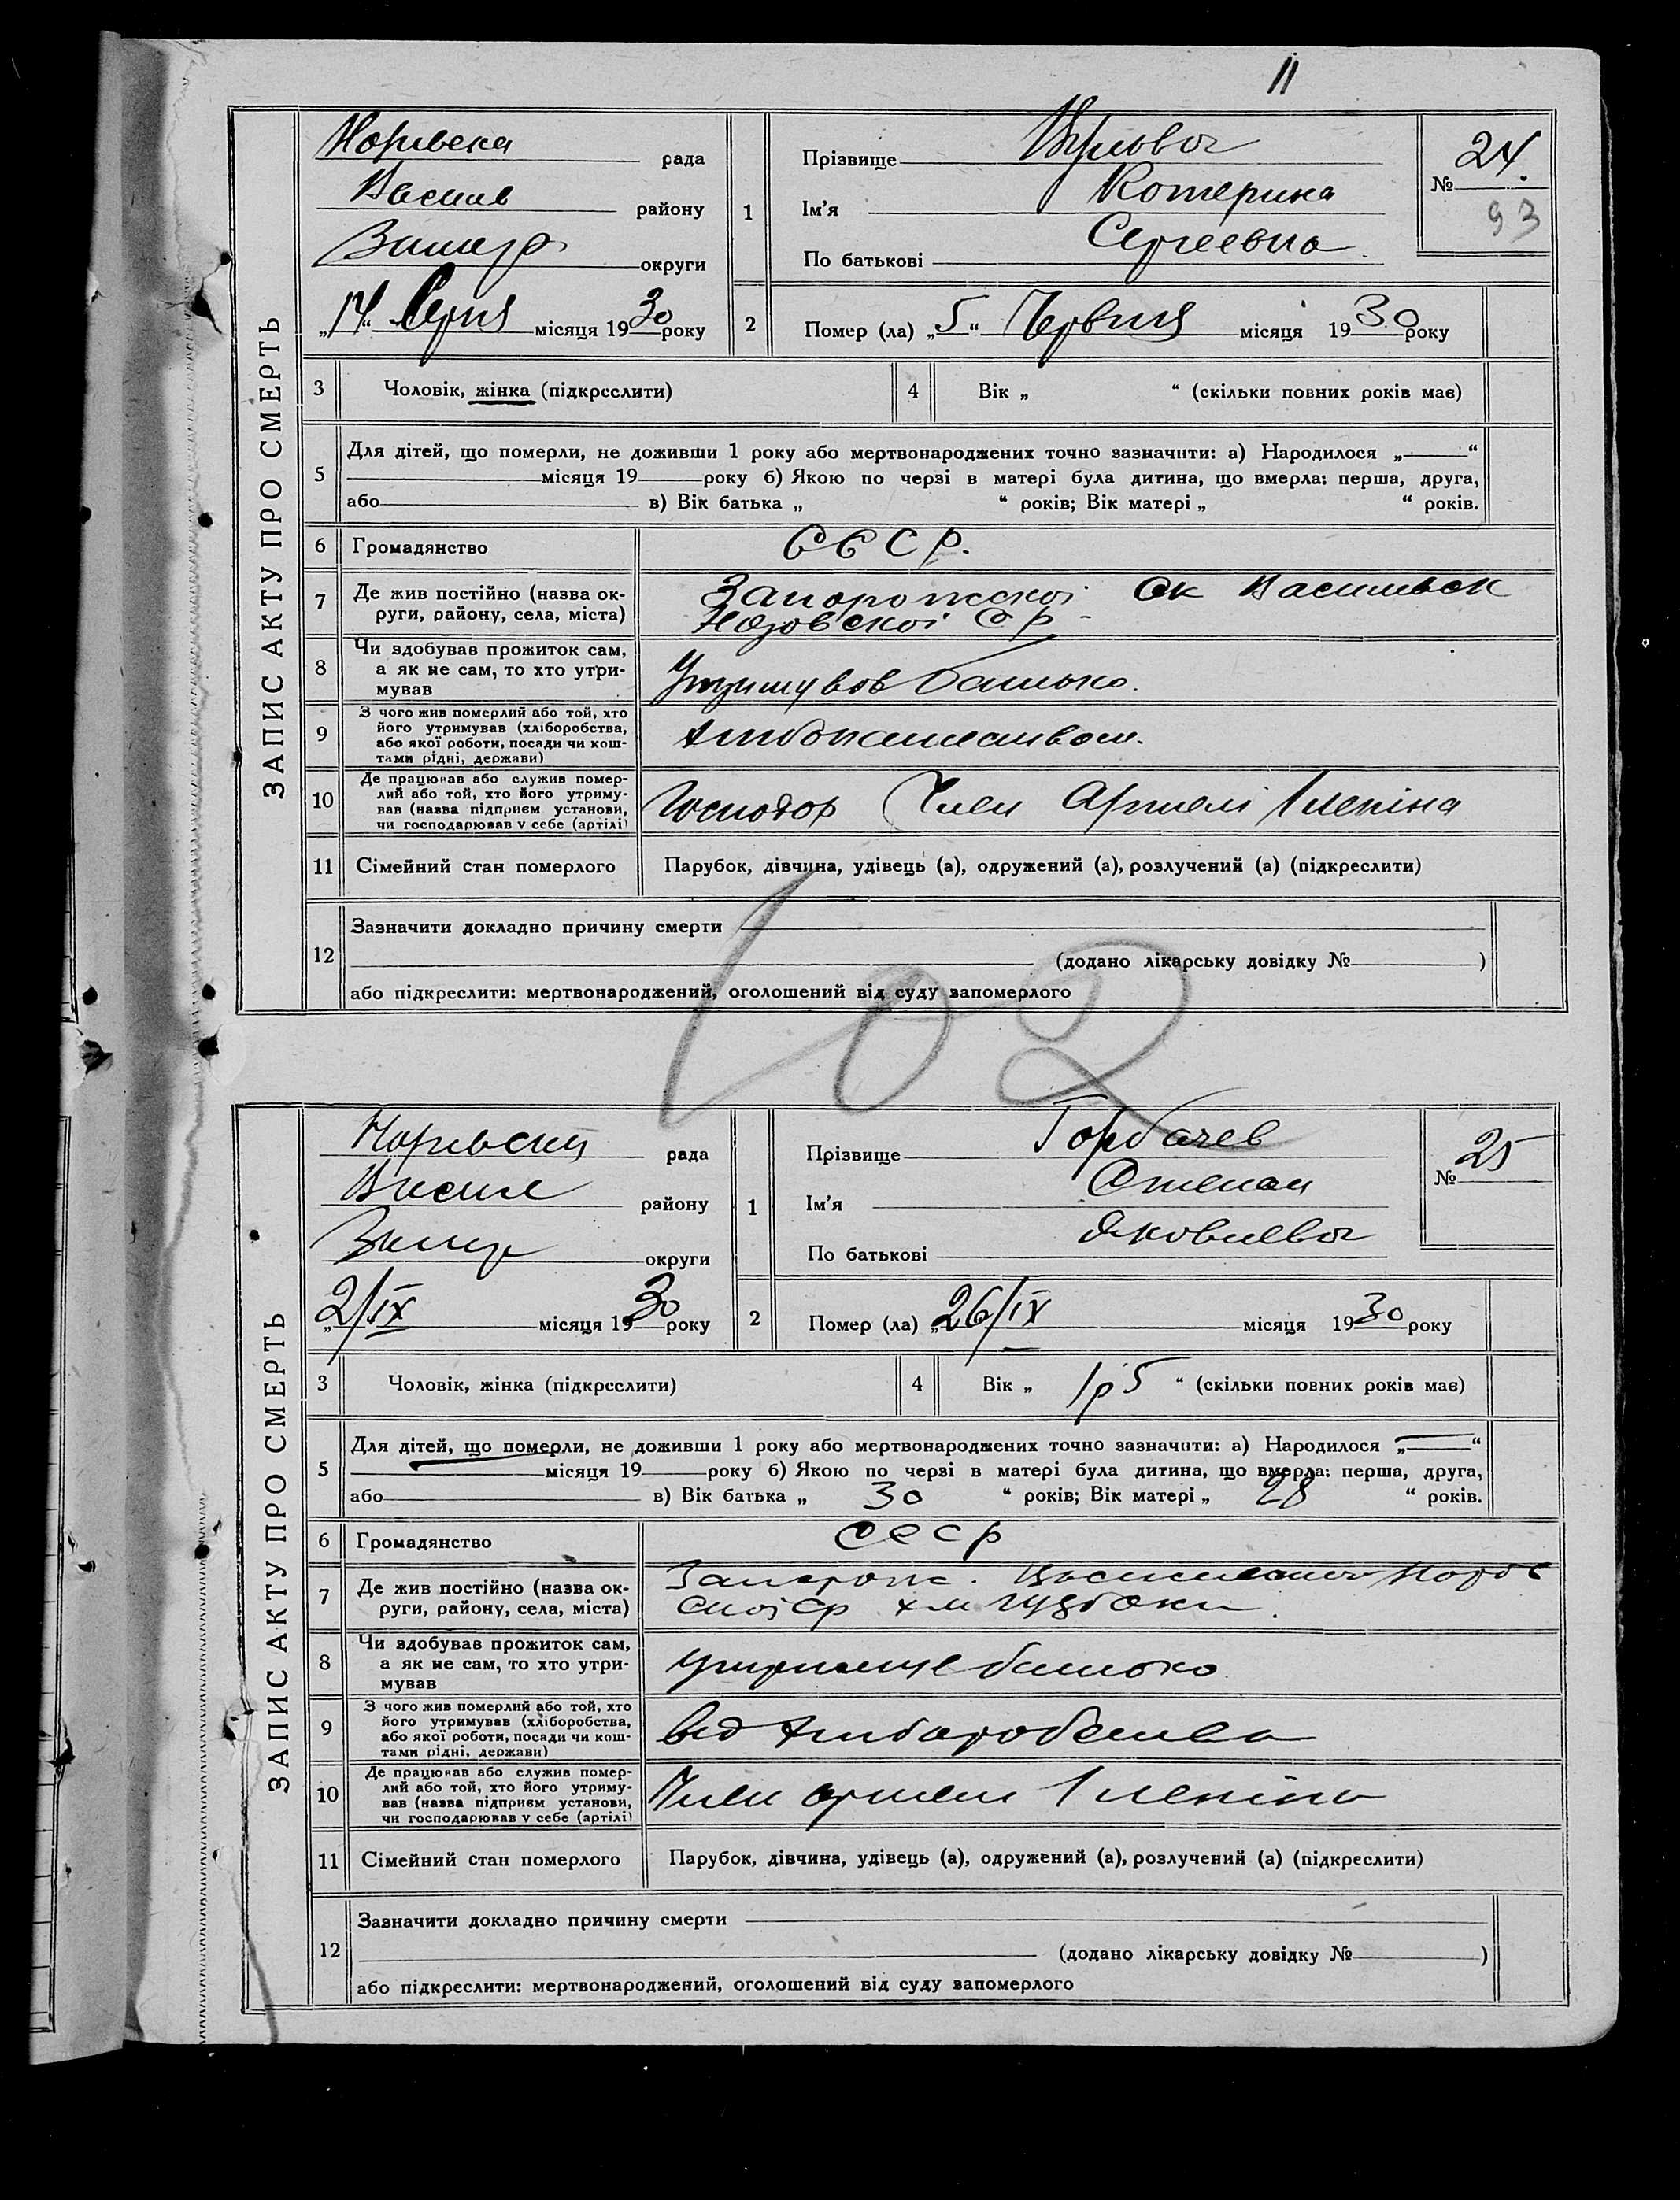 11
ЗАПИС АКТУ ПРО СМЕРТЬ
рада
району
округи
„14“ Серпня місяця 1930 року
1
Прізвище
Ім’я Котерина
По батькові Сергеевна
№ 24.
93
2
Помер (ла) „5“ Червня місяця 1930 року
3
Чоловік, жінка (підкреслити)
4
Вік „ “ (скільки повних років має)
5
Для дітей, що померли, не доживши 1 року або мертвонароджених точно зазначити: а) Народилося „ “
місяця 19 року б) Якою по черзі в матері була дитина, що вмерла: перша, друга,
або в) Вік батька „ “ років; Вік матері „ “ років.
6
Громадянство
СССР.
7
Де жив постійно (назва ок-
руги, району, села, міста)
Запорожскоі Ок
8
Чи здобував прожиток сам,
а як не сам, то хто утри-
мував
Утримував батько.
9
З чого жив померлий або той, хто
його утримував (хліборобства,
або якої роботи, посади чи кош-
тами рідні, держави)
10
Де працював або служив помер-
лий або той, хто його утриму-
вав (назва підприєм установи,
чи господарював у себе (артілі)
Господор Член Артелі Ілленіна
11
Сімейний стан померлого
Парубок, дівчина, удівець (а), одружений (а), розлучений (а) (підкреслити)
12
Зазначити докладно причину смерти
(додано лікарську довідку № )
або підкреслити: мертвонароджений, оголошений від суду запомерлого
102
ЗАПИС АКТУ ПРО СМЕРТЬ
рада
району
округи
„2/IX місяця 1930 року
1
Прізвище Горбачев
Ім’я Степан
По батькові Яковлева
№ 25
2
Помер (ла) „26/IX місяця 1930 року
3
Чоловік, жінка (підкреслити)
4
Вік „ 1р 5 “ (скільки повних років має)
5
Для дітей, що померли, не доживши 1 року або мертвонароджених точно зазначити: а) Народилося „ “
місяця 19 року б) Якою по черзі в матері була дитина, що вмерла: перша, друга,
або в) Вік батька „ 30 “ років; Вік матері „ 28 “ років.
6
Громадянство
СССР
7
Де жив постійно (назва ок-
руги, району, села, міста)
8
Чи здобував прожиток сам,
а як не сам, то хто утри-
мував
батько
9
З чого жив померлий або той, хто
його утримував (хліборобства,
або якої роботи, посади чи кош-
тами рідні, держави)
від хлиборобства
10
Де працював або служив помер-
лий або той, хто його утриму-
вав (назва підприєм установи,
чи господарював у себе (артілі)
Член артели
11
Сімейний стан померлого
Парубок, дівчина, удівець (а), одружений (а), розлучений (а) (підкреслити)
12
Зазначити докладно причину смерти
(додано лікарську довідку № )
або підкреслити: мертвонароджений, оголошений від суду запомерлого